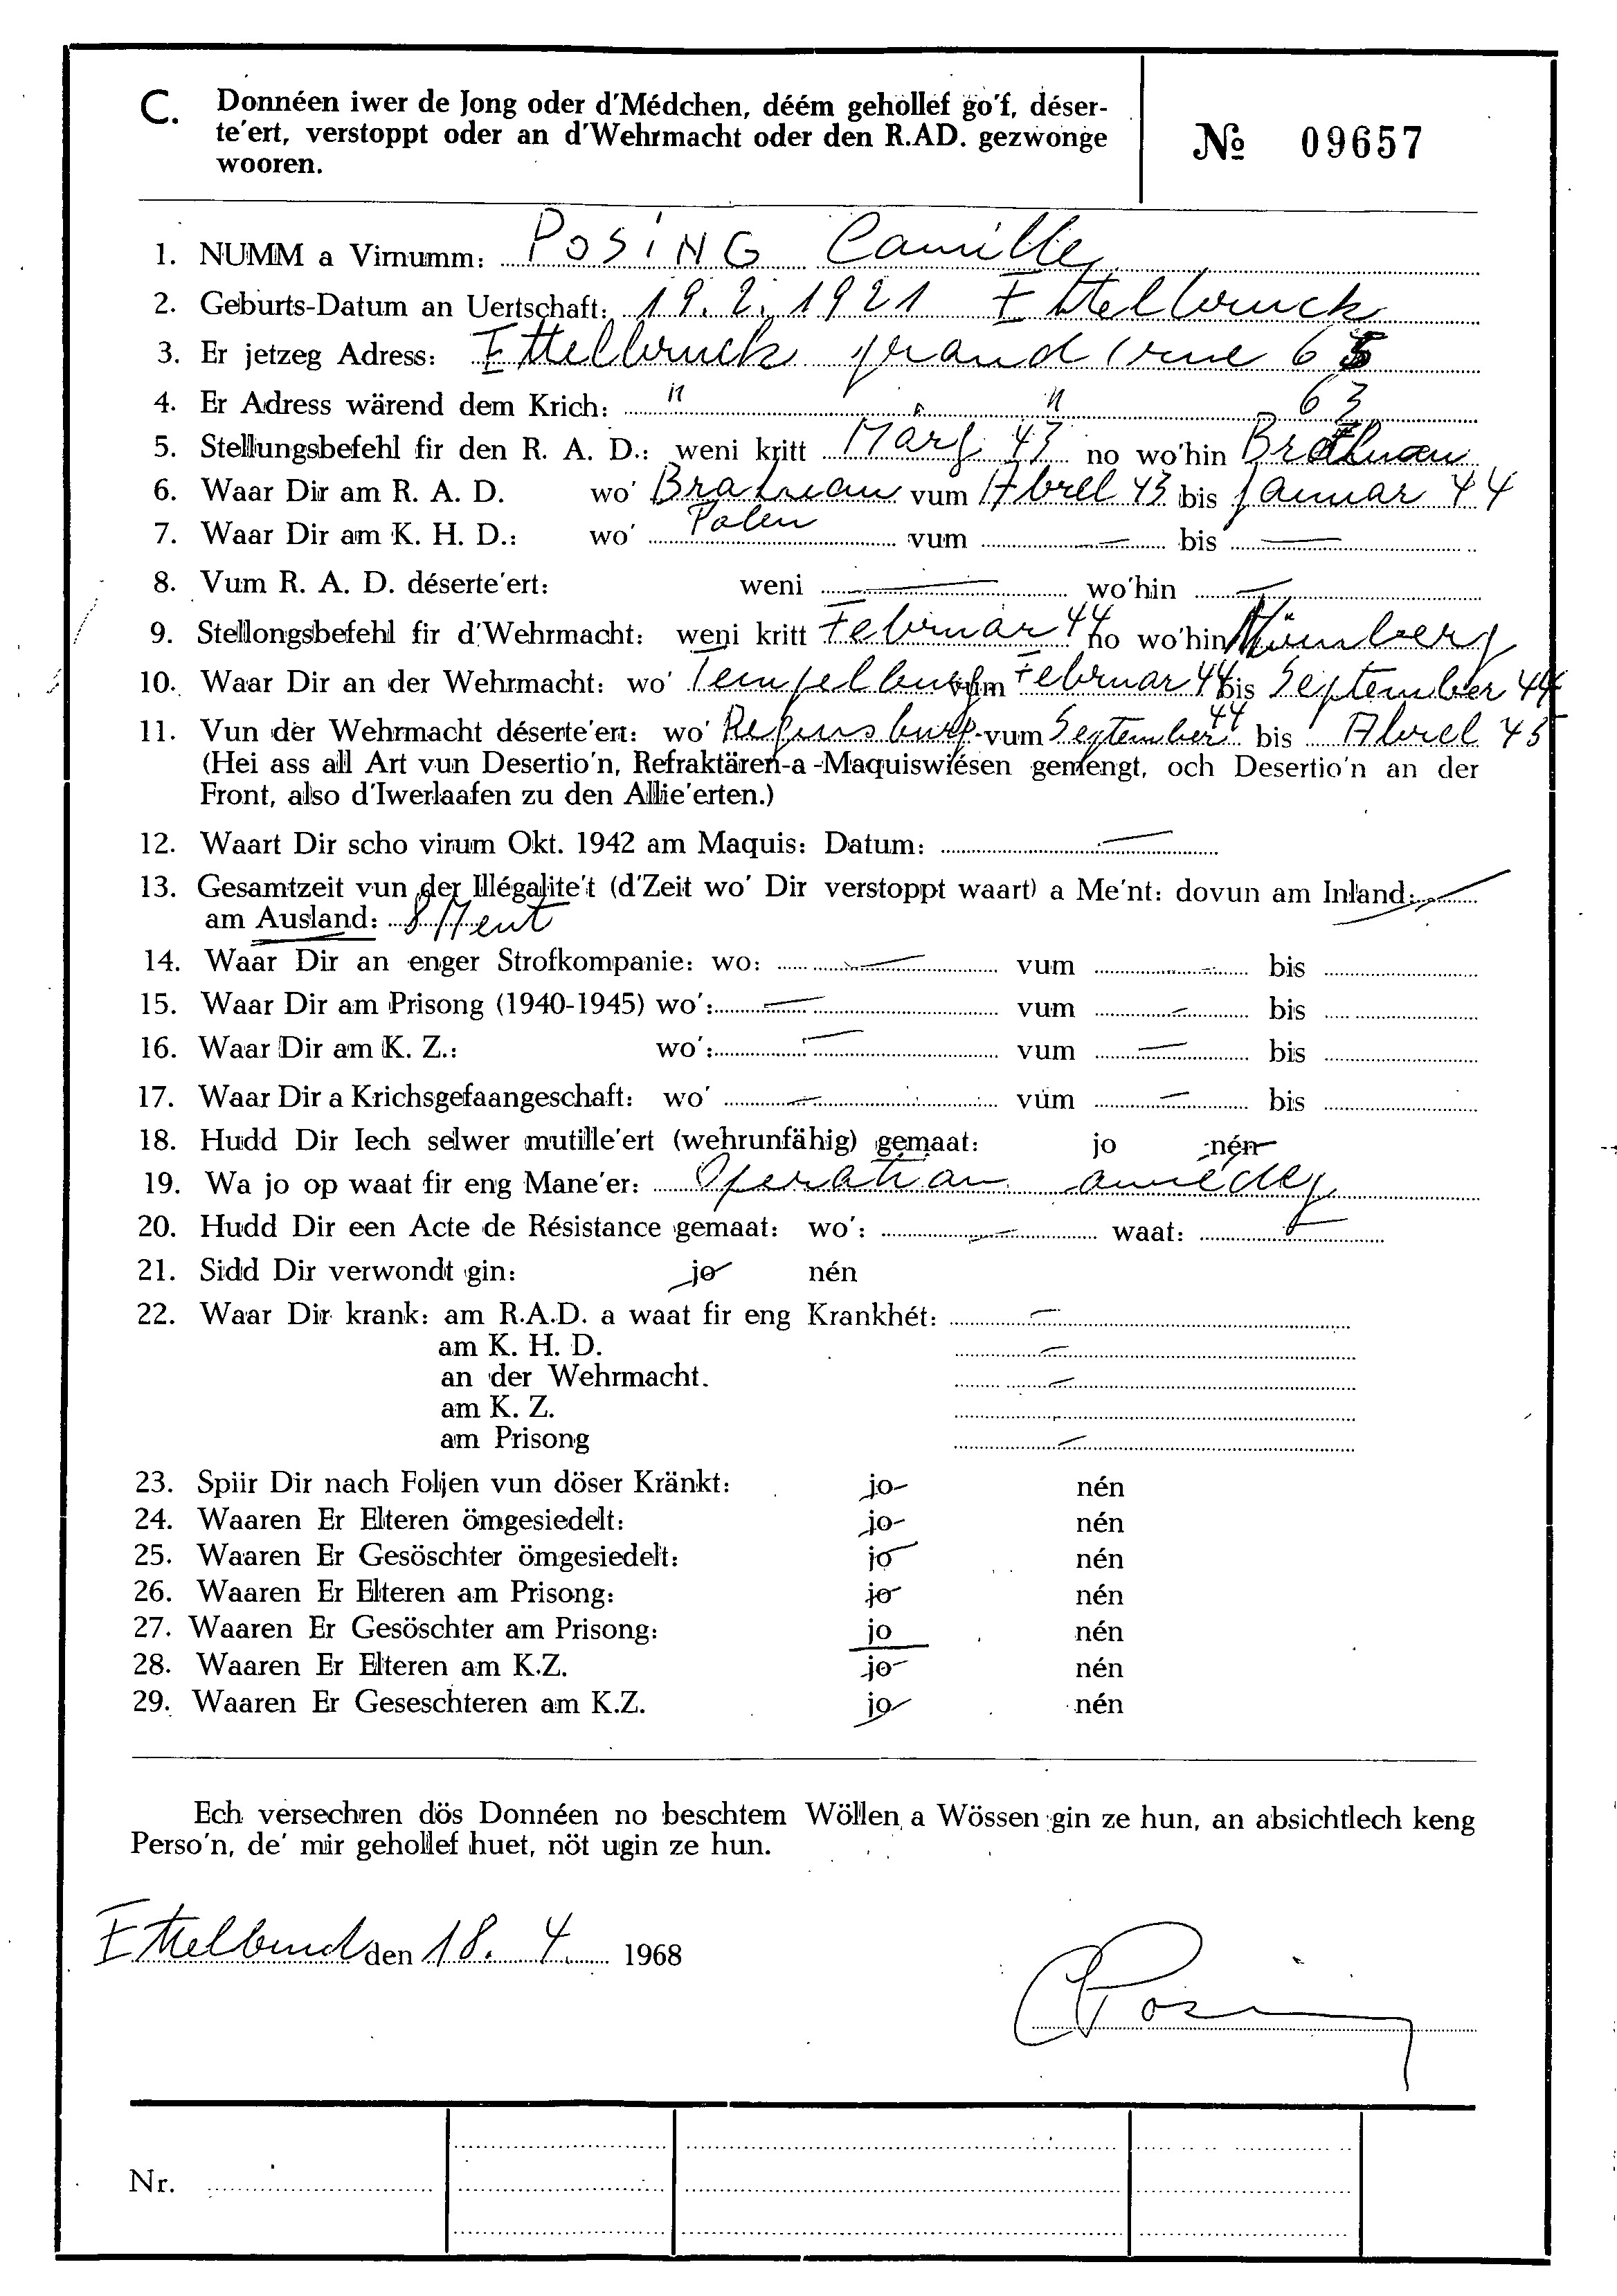 C. Donnéen iwer de Jong oder d'Médchen, déém gehollef go'f, déser-
te'ert, verstoppt oder an d'Wehrmacht oder den R.AD. gezwonge
wooren.
№ 09657
1. NUMM a Virnumm: POSING Camille
2. Geburts-Datum an Uertschaft: 19. 2. 1921 Ettelbruck
3. Er jetzeg Adress: Ettelbruck grand rue 65
4. Er Adress wärend dem Krich: " " 63
5. Stellungsbefehl fir den R. A. D.: weni kritt März 43 no wo'hin
6. Waar Dir am R. A. D. wo' vum Abrel 43 bis Januar 44
7. Waar Dir am K. H. D.: wo' Polen vum — bis —
8. Vum R. A. D. déserte'ert: weni — wo'hin —
9. Stellongsbefehl fir d'Wehrmacht: weni kritt Februar 44 no wo'hin Nürnberg
10. Waar Dir an der Wehrmacht: wo' Tempelburg vum Februar 44 bis September 44
11. Vun der Wehrmacht déserte'ert: wo' Regensburg vum September 44 bis Abrel 45
(Hei ass all Art vun Desertio'n, Refraktären-a-Maquiswiésen gemengt, och Desertio'n an der
Front, also d'Iwerlaafen zu den Allie'erten.)
12. Waart Dir scho virum Okt. 1942 am Maquis: Datum: —
13. Gesamtzeit vun der Illégalite't (d'Zeit wo' Dir verstoppt waart) a Me'nt: dovun am Inland: —
am Ausland: 8 Ment
14. Waar Dir an enger Strofkompanie: wo: — vum — bis
15. Waar Dir am Prisong (1940-1945) wo': — vum — bis
16. Waar Dir am K. Z.: wo': — vum — bis
17. Waar Dir a Krichsgefaangeschaft: wo' — vum — bis
18. Hudd Dir Iech selwer mutille'ert (wehrunfähig) gemaat: jo nén
19. Wa jo op waat fir eng Mane'er: Operation
20. Hudd Dir een Acte de Résistance gemaat: wo': — waat: —
21. Sidd Dir verwondt gin: jo nén
22. Waar Dir krank: am R.A.D. a waat fir eng Krankhét: —
am K. H. D. —
an der Wehrmacht. —
am K. Z.
am Prisong —
23. Spiir Dir nach Foljen vun döser Kränkt: jo nén
24. Waaren Er Elteren ömgesiedelt: jo nén
25. Waaren Er Gesöschter ömgesiedelt: jo nén
26. Waaren Er Elteren am Prisong: jo nén
27. Waaren Er Gesöschter am Prisong: jo nén
28. Waaren Er Elteren am K.Z. jo nén
29. Waaren Er Geseschteren am K.Z. jo nén
Ech versechren dös Donnéen no beschtem Wöllen a Wössen gin ze hun, an absichtlech keng
Perso'n, de' mir gehollef huet, nöt ugin ze hun.
Ettelbruck den 18. 4. 1968
C Posing
Nr.